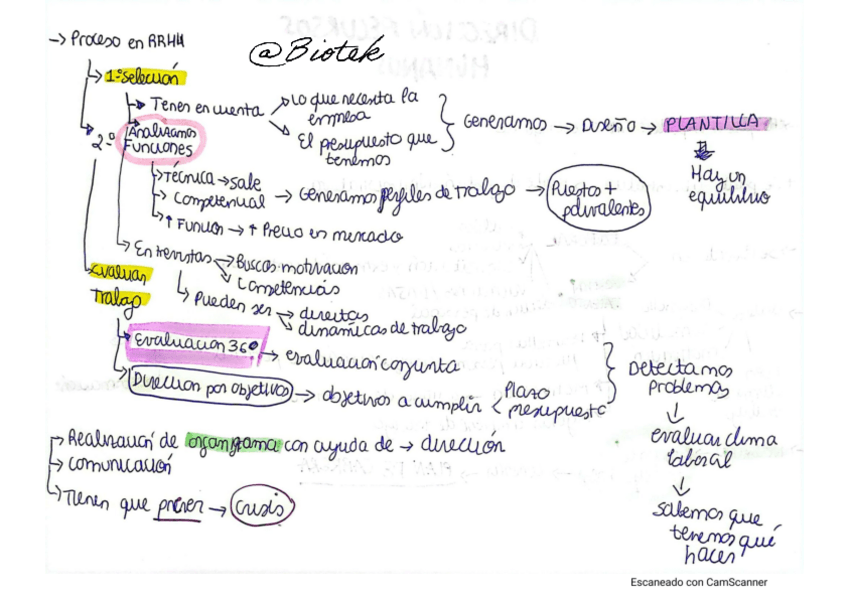 → Proceso en RRHH
@Biotek
→ 1º selección
→ Tener en cuenta → Lo que necesita la empresa
→ El presupuesto que tenemos
} Generamos → Diseño → PLANTILLA
↓
Hay un equilibrio
2º
Analizamos Funciones
→ Técnica → sale
→ Competencial → Generamos perfiles de trabajo → Puestos + polivalentes
→ ↑ Función → ↑ Precio en mercado
→ Entrevistas → Buscas motivación
→ Competencias
→ Pueden ser → directas
→ dinámicas de trabajo
Evaluar Trabajo
→ Evaluación 36º → evaluación conjunta
→ Dirección por objetivos → objetivos a cumplir < Plazo
presupuesto
} Detectamos problemas
↓
evaluar clima laboral
↓
sabemos que tenemos qué hacer
→ Realización de organigrama con ayuda de → dirección
→ comunicación
→ Tienen que prever → crisis
Escaneado con CamScanner